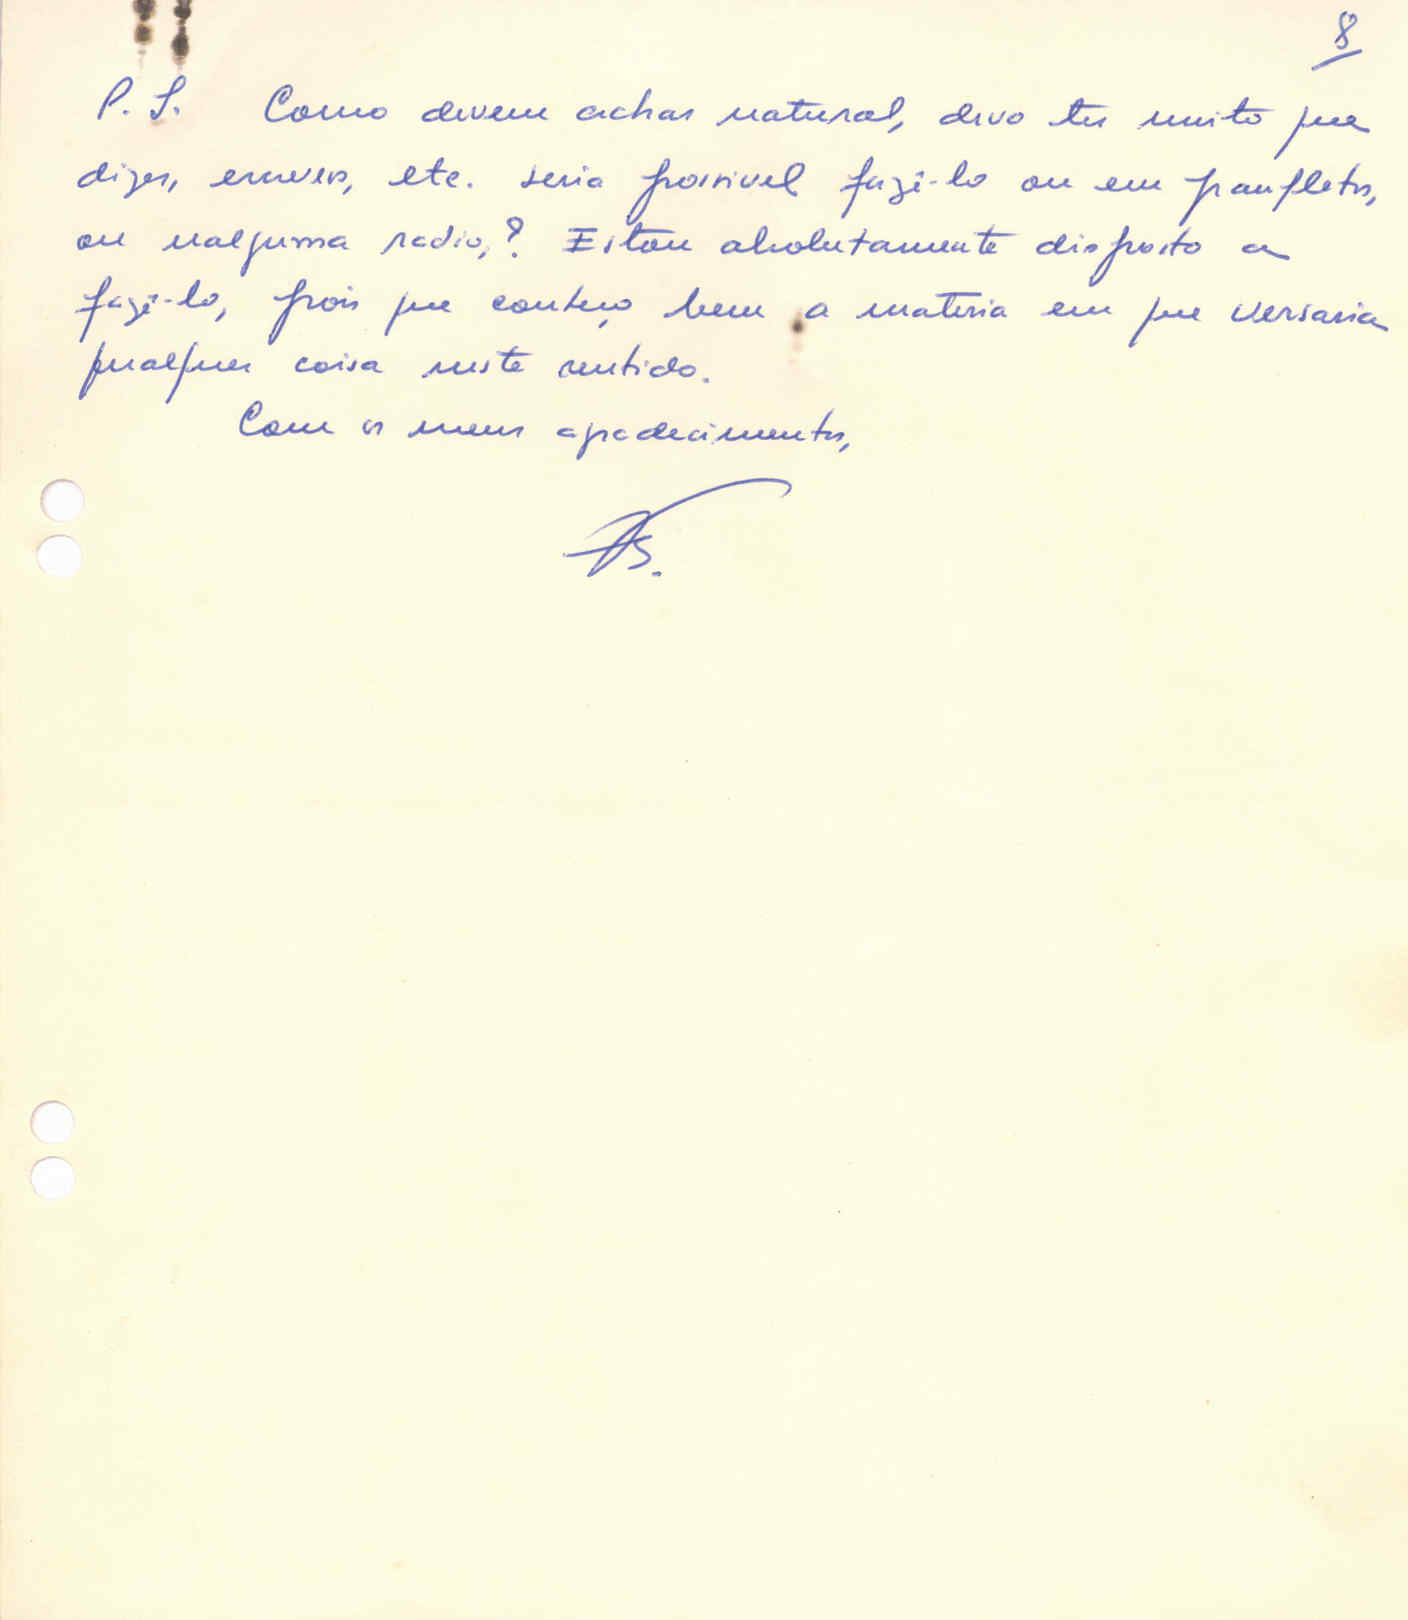 8
P. S. Como devem achar natural, devo ter muito que
dizer, escrever, etc. seria possivel fazê-lo ou em panfletos,
ou nalguma radio,? Estou absolutamente disposto a
fazê-lo, pois que conheço bem a materia em que versaria
qualquer coisa neste sentido.
Com os meus agradecimentos,